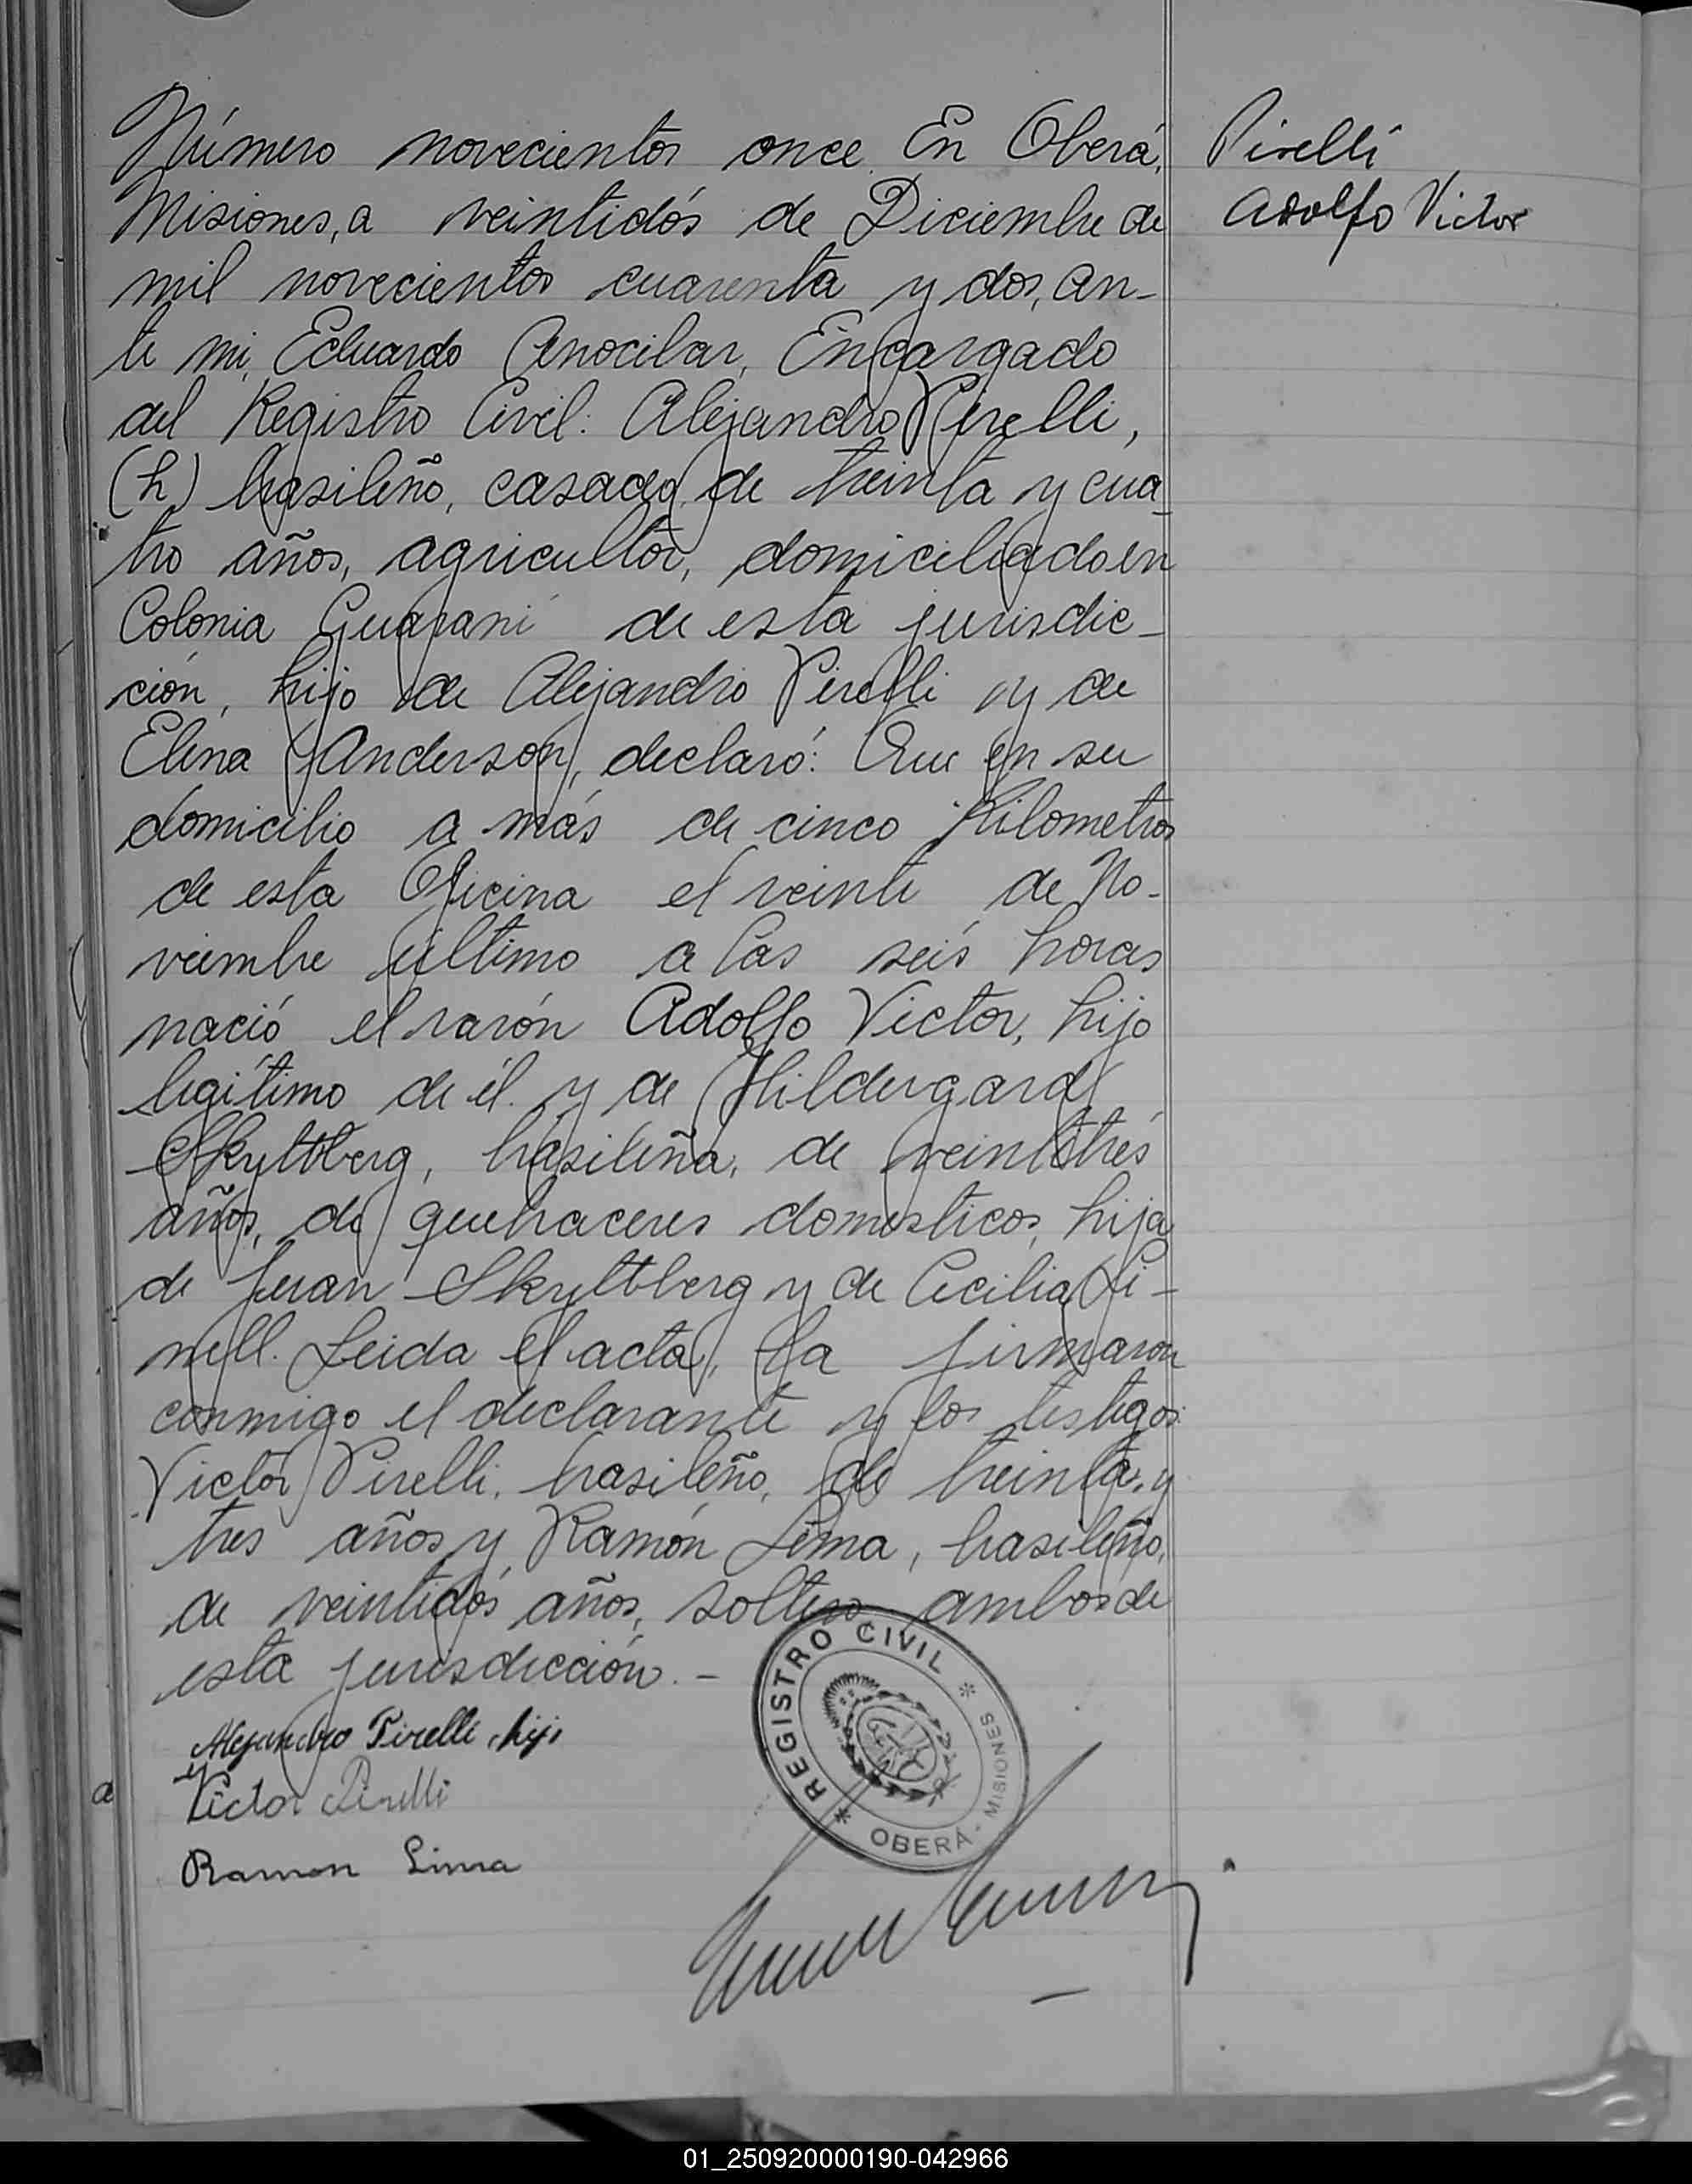 Número novecientos once. En Oberá,
Misiones, a veintidós de Diciembre de
mil novecientos cuarenta y dos, an-
te mi, Eduardo Anocibar, Encargado
del Registro Civil: Alejandro Pirelli,
(h) brasileño, casado, de treinta y cua-
tro años, agricultor, domiciliado en
Colonia Guaraní de esta jurisdic-
ción, hijo de Alejandro Pirelli y de
Elena Anderson, declaró: Que en su
domicilio a más de cinco Kilometros
de esta Oficina el veinte de No-
viembre último a las seis horas
nació el varón Adolfo Victor, hijo
legítimo de él y de Hildergard
Skyttberg, brasileña, de veintitrés
años, de quehaceres domesticos, hija
de Juan Skyttberg y de Cecilia Li-
nell. Leida el acta, la firmaron
conmigo el declarante y los testigos:
Victor Pirelli, brasileño, de treinta y
tres años y Ramón Lima, brasileño,
de veintidós años, soltero ambos de
esta jurisdicción. -
Alejandro Pirelli hijo
Victor Pirelli
Ramon Lima
Pirelli
Adolfo Victor
a
REGISTRO CIVIL
OBERÁ - MISIONES
01_250920000190-042966